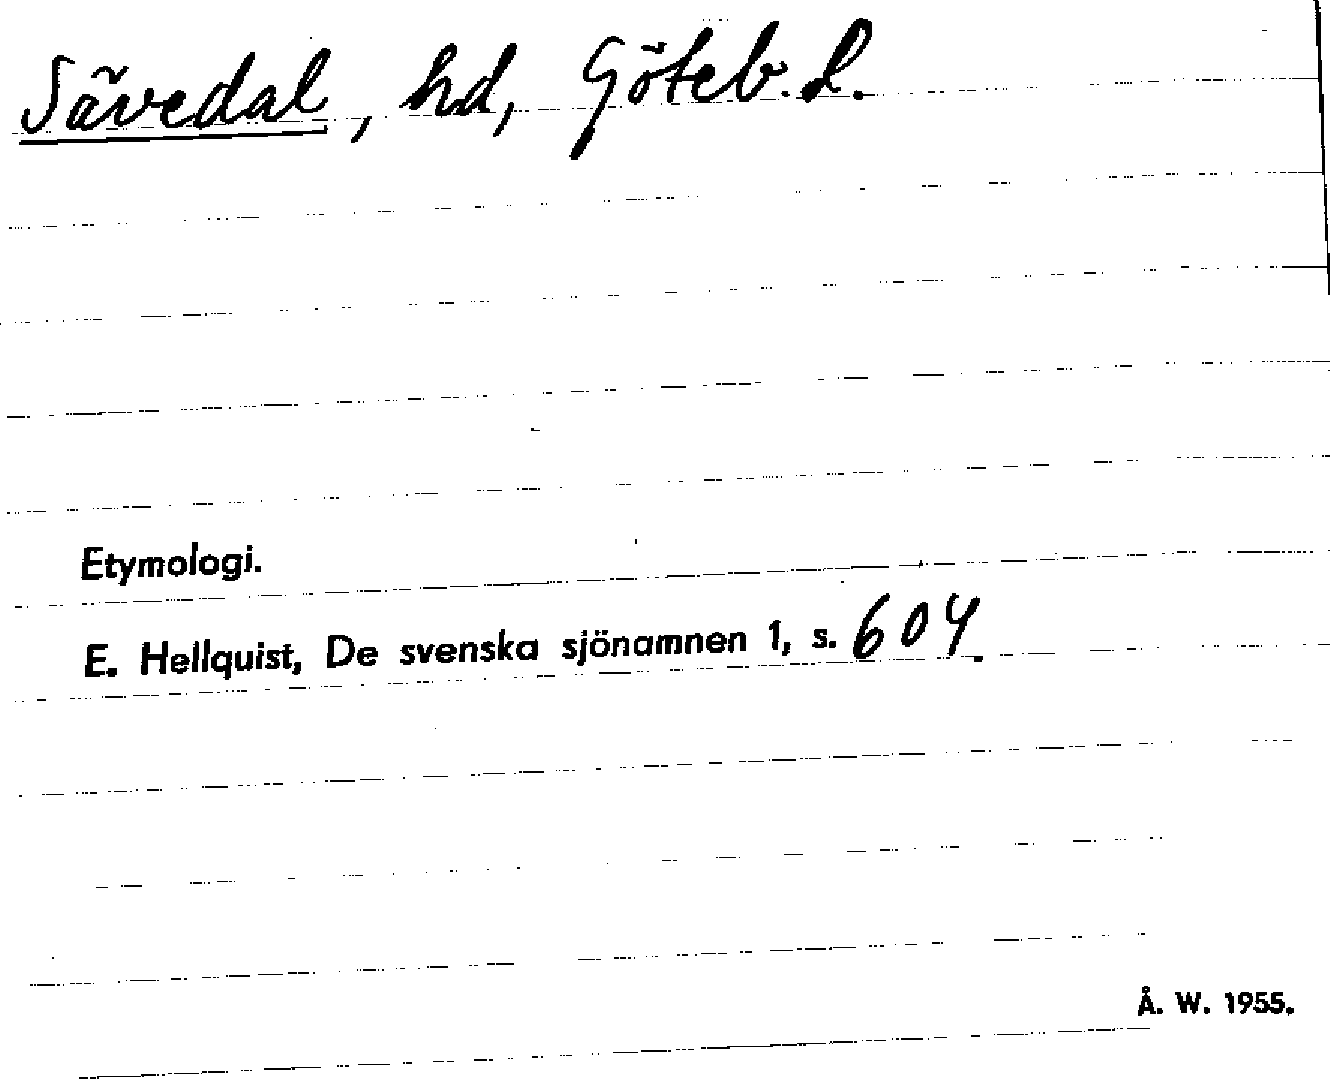 Sävedal, hd, Göteb. l.
Etymologi.
E. Hellquist, De svenska sjönamnen 1, s. 604.
Å. W. 1955.